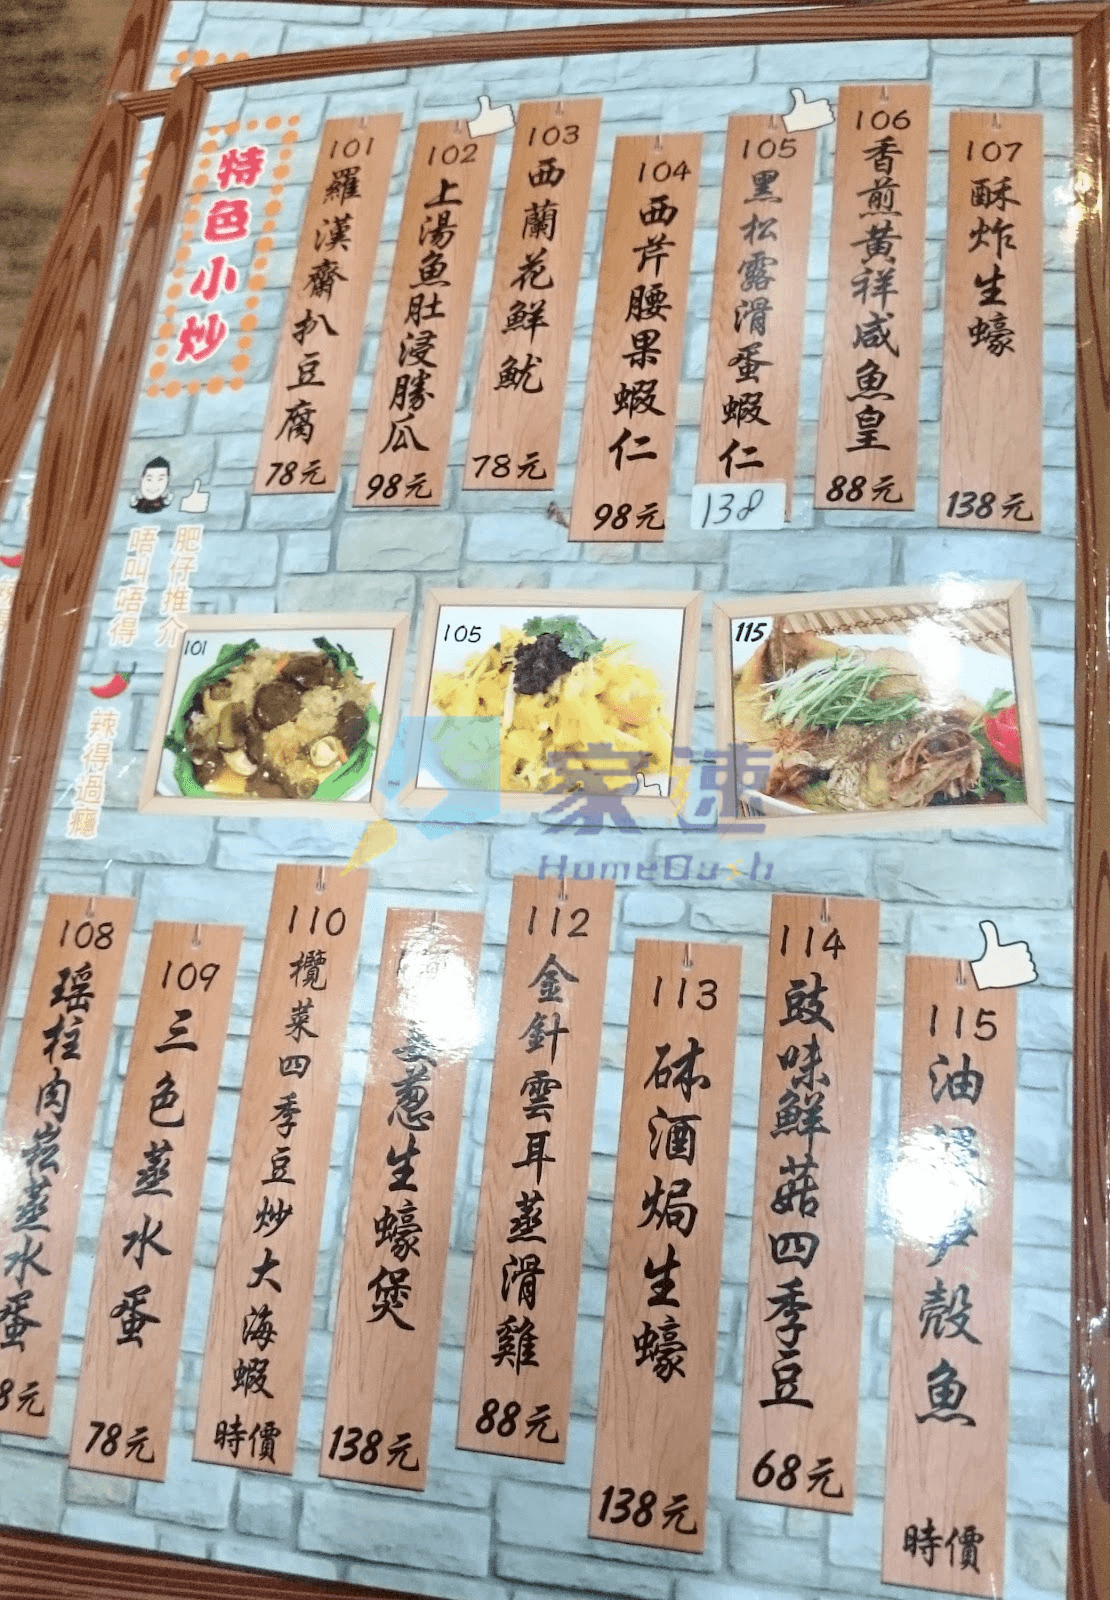 特色小炒
101 羅漢齋扒豆腐 78元
102 上湯魚肚浸勝瓜 98元
103 西蘭花鮮魷 78元
104 西芹腰果蝦仁 98元
105 黑松露滑蛋蝦仁 138
106 香煎黃祥咸魚皇 88元
107 酥炸生蠔 138元
肥仔推介
唔叫唔得
辣得過癮
101
105
115
家速
HomeDash
108 瑶柱肉崧蒸水蛋 8元
109 三色蒸水蛋 78元
110 欖菜四季豆炒大海蝦 時價
蔥生蠔煲 138元
112 金針雲耳蒸滑雞 88元
113 砵酒焗生蠔 138元
114 豉味鮮菇四季豆 68元
115 油浸笋殼魚 時價